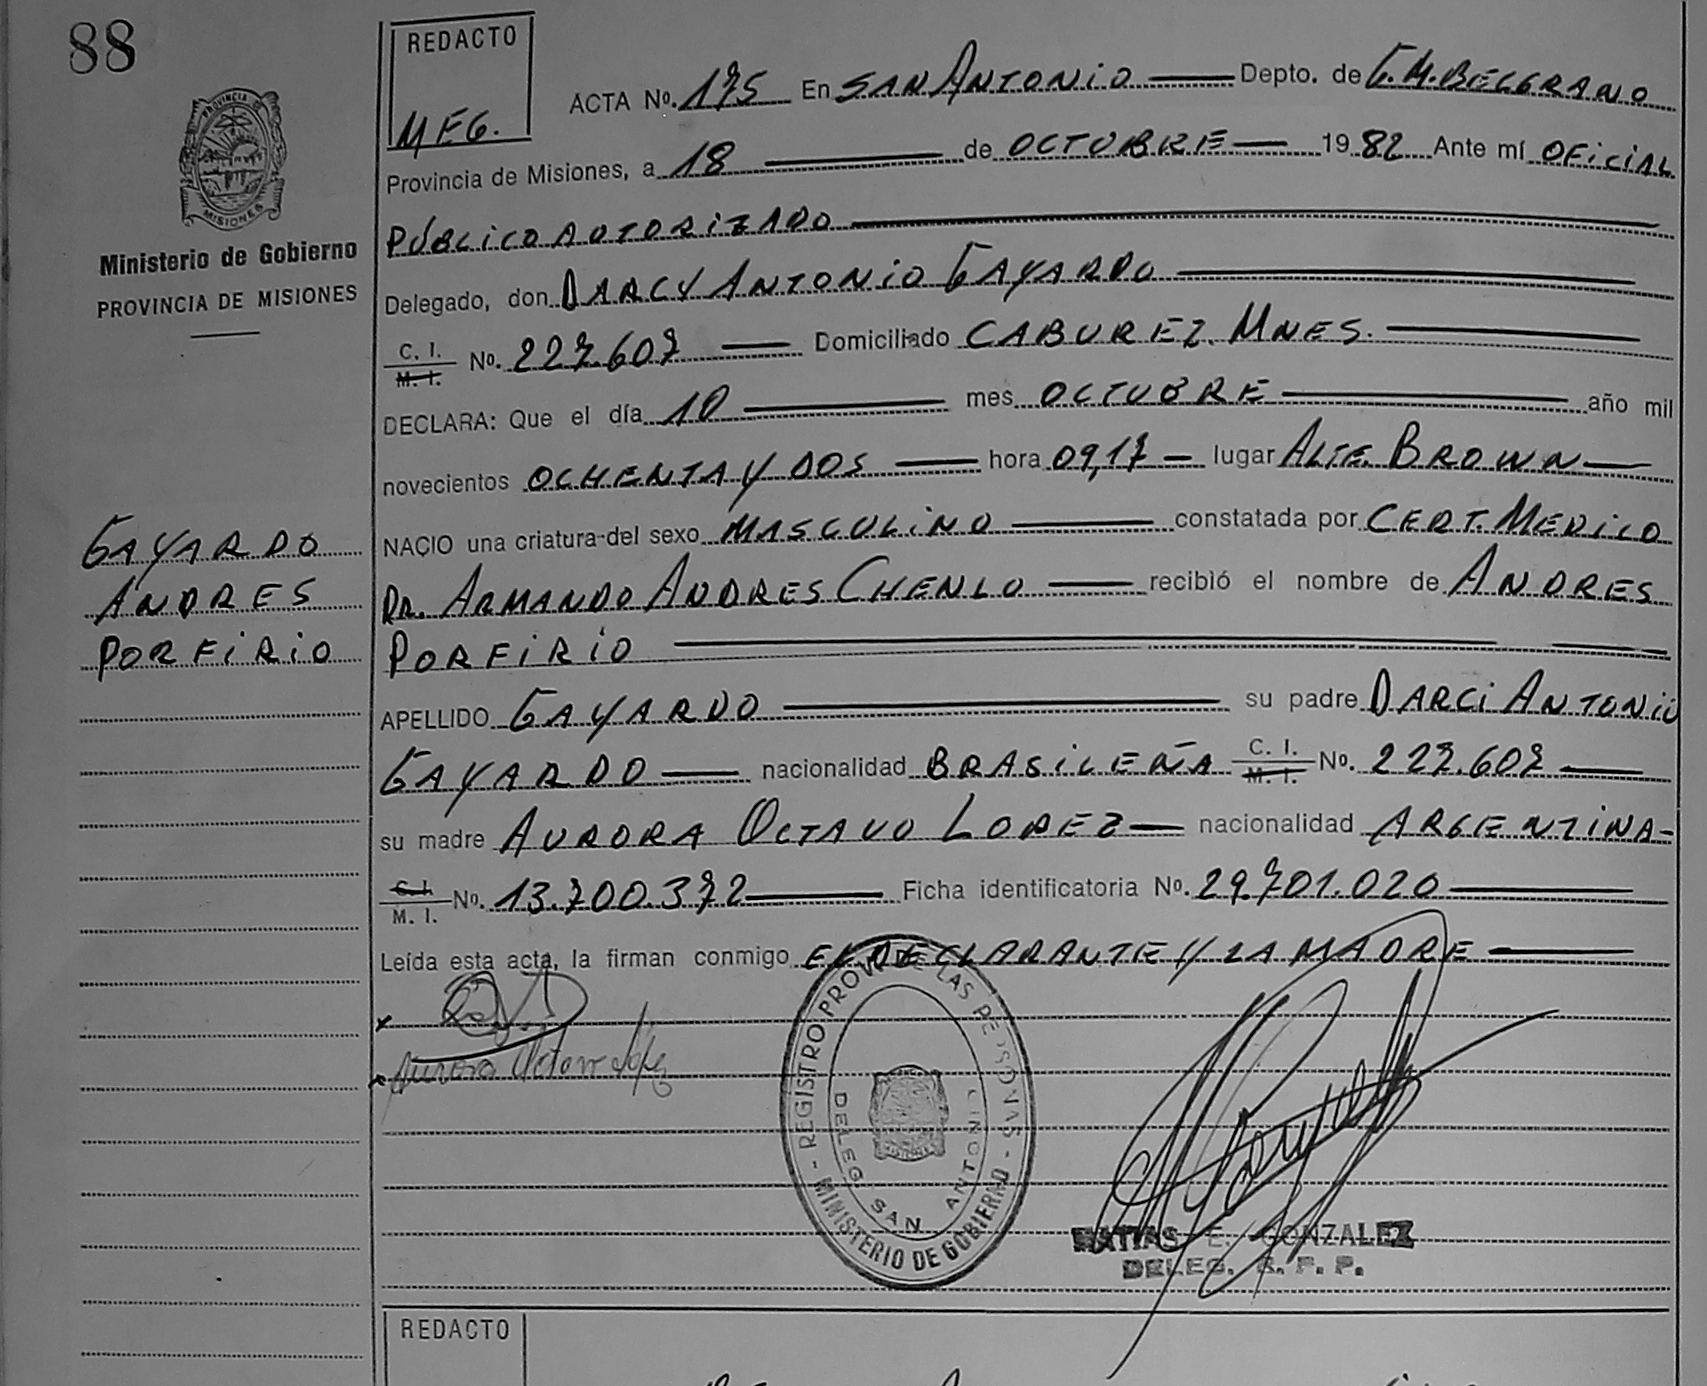 88
REDACTO
MEG.
ACTA No. 175 En SAN ANTONIO Depto. de G.M.BELGRANO
Provincia de Misiones, a 18 de OCTUBRE 1982 Ante mí OFiCiAL
PÚBLiCO AUTORiZADO
Delegado, don DARCY ANTONiO GAYARDO
C. I.
M. I. No. 227.607 Domiciliado CABUREZ. MNES.
DECLARA: Que el día 10 mes OCTUBRE año mil
novecientos OCHENTA Y DOS hora 09,17 lugar ALTE. BROWN
NACIO una criatura del sexo MASCULiNO constatada por CERT. MEDiCO
DR. ARMANDO ANDRES CHENLO recibió el nombre de ANDRES
PORFiRiO
APELLIDO GAYARDO su padre DARCi ANTONiO
GAYARDO nacionalidad BRASiLEÑA C. I.
M. I. No. 227.607
su madre AURORA OCTAVO LOPEZ nacionalidad ARGENTiNA-
C. I.
M. I. No. 13.700.372 Ficha identificatoria No. 29.701.020
Leída esta acta, la firman conmigo EL DECLARANTE Y LA MADRE
PROVINCIA DE
MISIONES
Ministerio de Gobierno
PROVINCIA DE MISIONES
GAYARDO
ANDRES
PORFiRiO
x
x Aurora Octavo López
REGISTRO PROV. DE LAS PERSONAS
- MINISTERIO DE GOBIERNO -
DELEG. SAN ANTONIO
MATIAS E. GONZALEZ
DELEG. R. P. P.
REDACTO